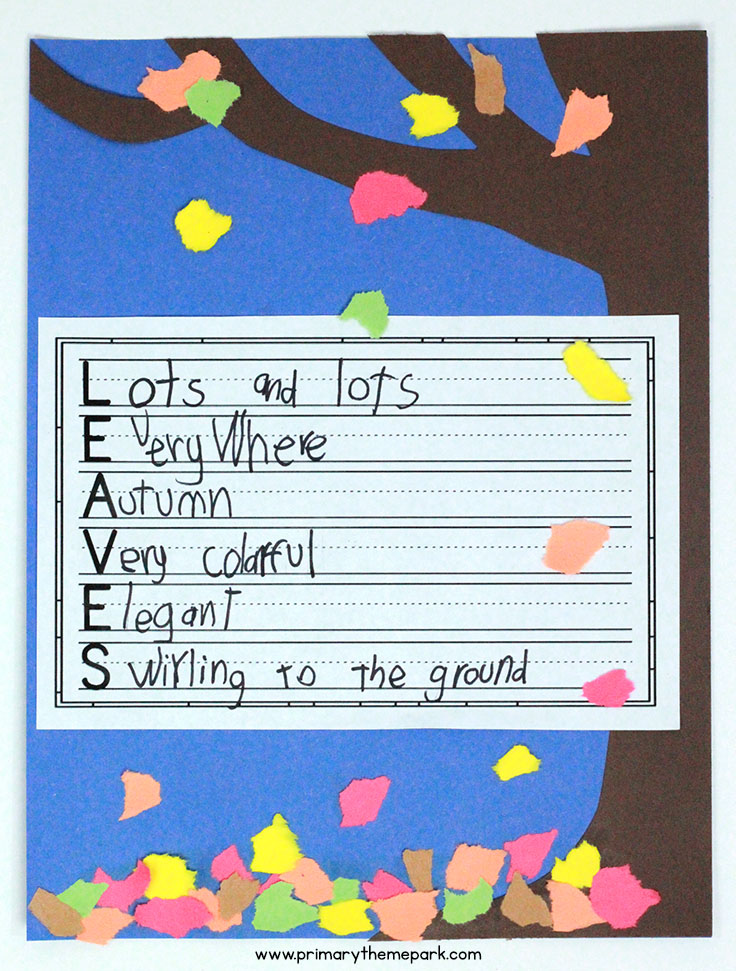 Lots and lots
EveryWhere
Autumn
Very colarful
Elegant
Swirling to the ground
www.primarythemepark.com